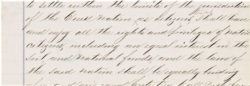 to settle within the limits of the jurisdiction
of the Creek Nation as citizens shall have
and enjoy all the rights and privileges of native
citizens, including an equal interest in the
soil and national funds, and the laws of
the said nation shall be equally binding